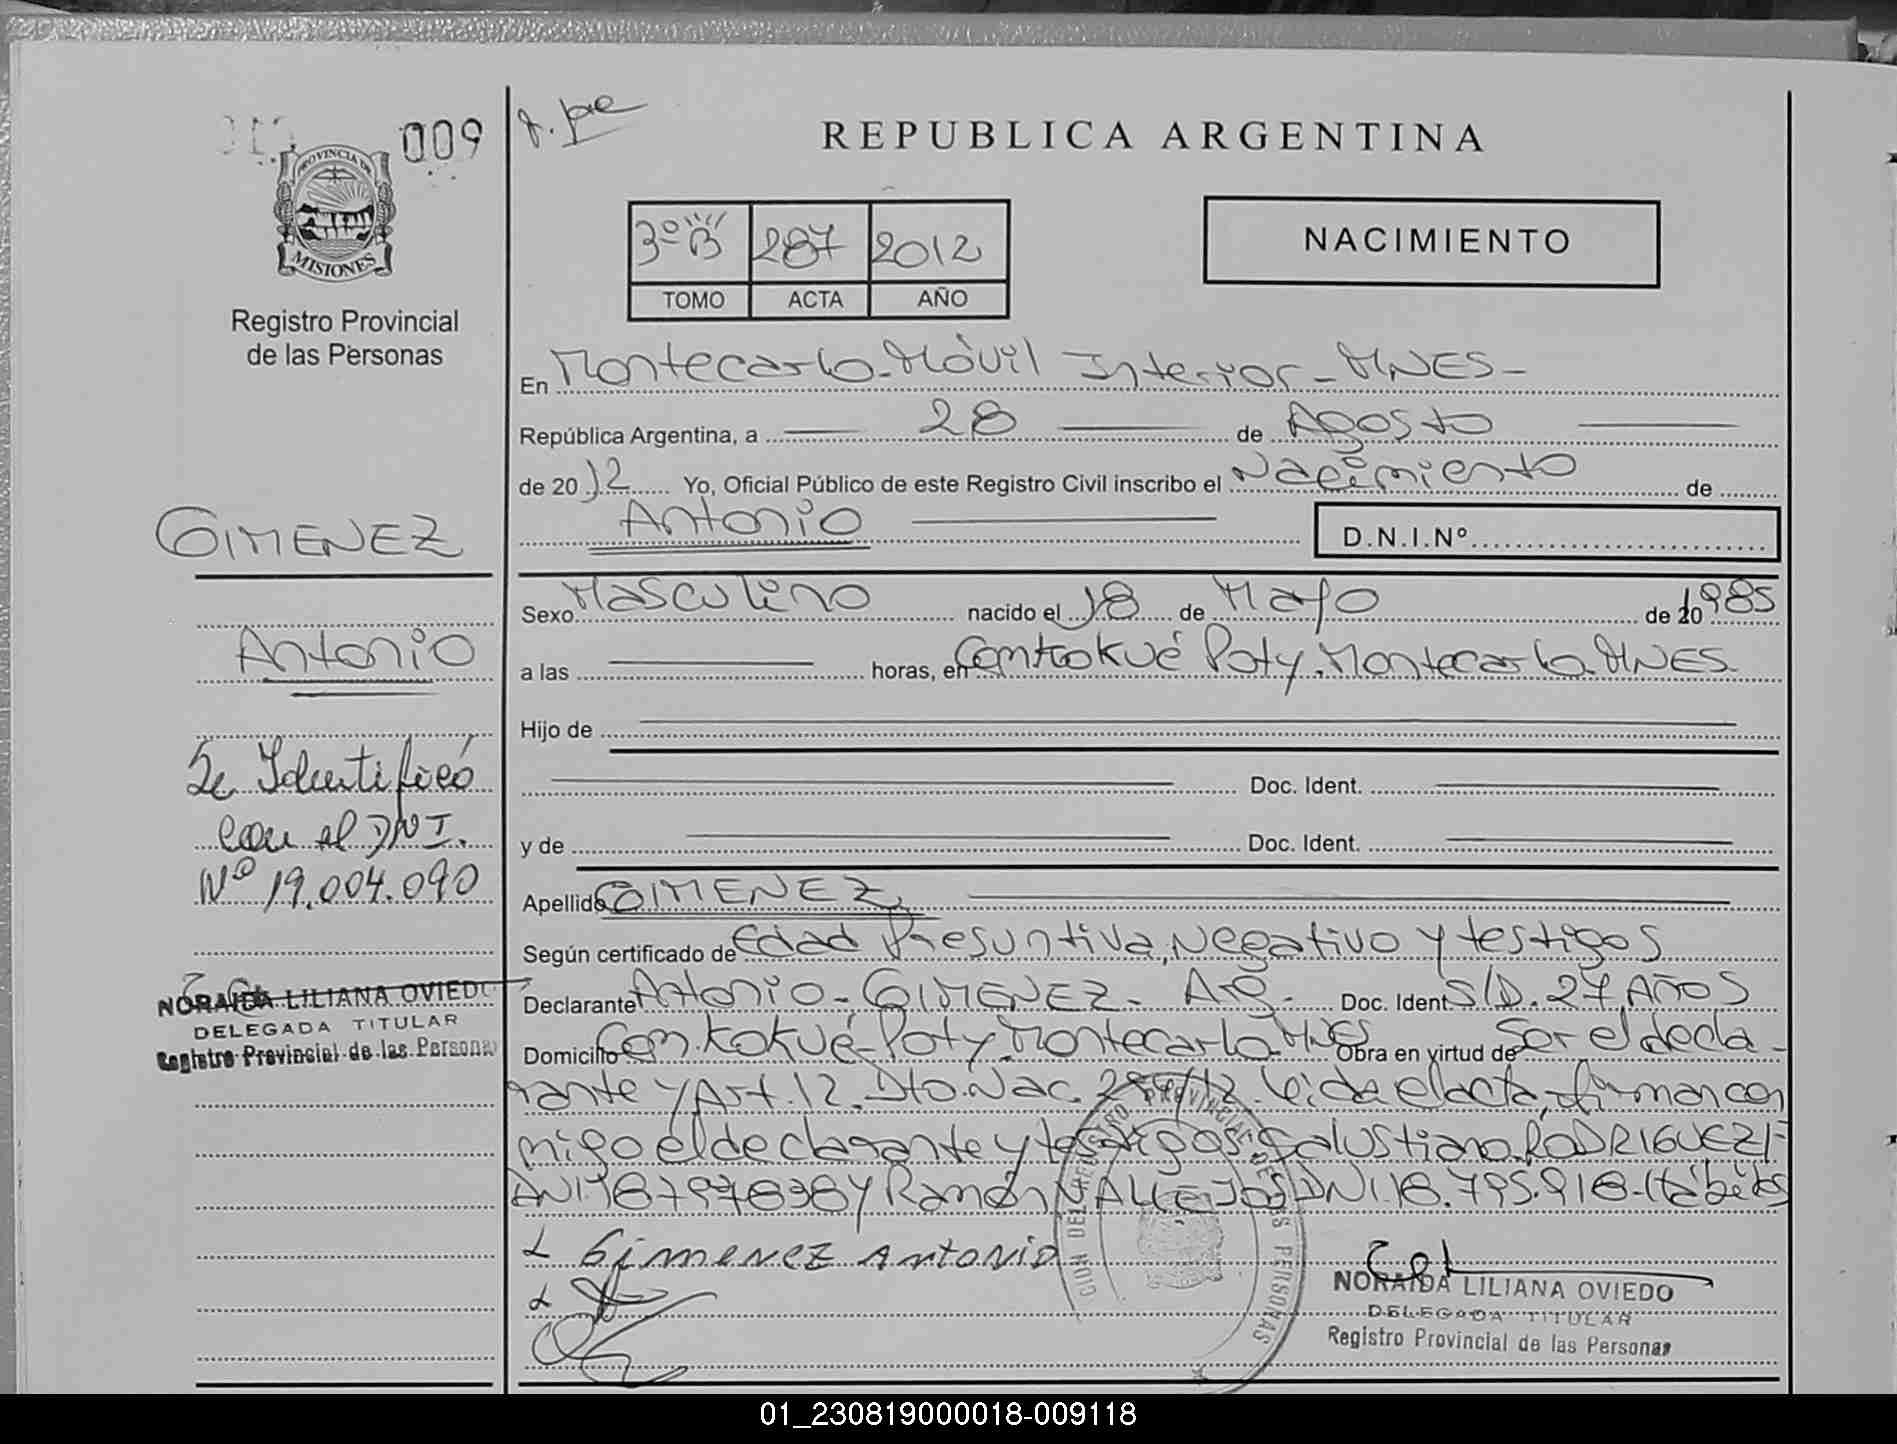 009
PROVINCIA DE
MISIONES
Registro Provincial
de las Personas
GIMENEZ
Antonio
Se Identificó
con el DNI.
Nº 19.004.090
NORAIDA LILIANA OVIEDO
DELEGADA TITULAR
Registro Provincial de las Personas
REPUBLICA ARGENTINA
3º "B" 287 2012
TOMO ACTA AÑO
NACIMIENTO
En Montecarlo-Móvil Interior-MNES-
República Argentina, a 28 de Agosto
de 2012 Yo, Oficial Público de este Registro Civil inscribo el Nacimiento de
Antonio D.N.I.Nº
Sexo Masculino nacido el 18 de Mayo de 1985
a las horas, en Com Kokué Poty.Montecarlo.MNES.
Hijo de
Doc. Ident.
y de Doc. Ident.
Apellido GIMENEZ
Según certificado de Edad Presuntiva, Negativo y testigos
Declarante Antonio-GIMENEZ-Arg. Doc. Ident S/D.27 AÑOS
Domicilio Com.Kokué-Poty.Montecarlo.MNES Obra en virtud de Ser el decla-
rante y Art.12.Dto.Nac. 294/12. Leida el acta, firman con
migo el declarante y testigos: Salustiano RODRIGUEZ
DNI: y Ramón VALLEJOS DNI.18.795.918-
Gimenez Antonio
NORAIDA LILIANA OVIEDO
DELEGADA TITULAR
Registro Provincial de las Personas
01_230819000018-009118